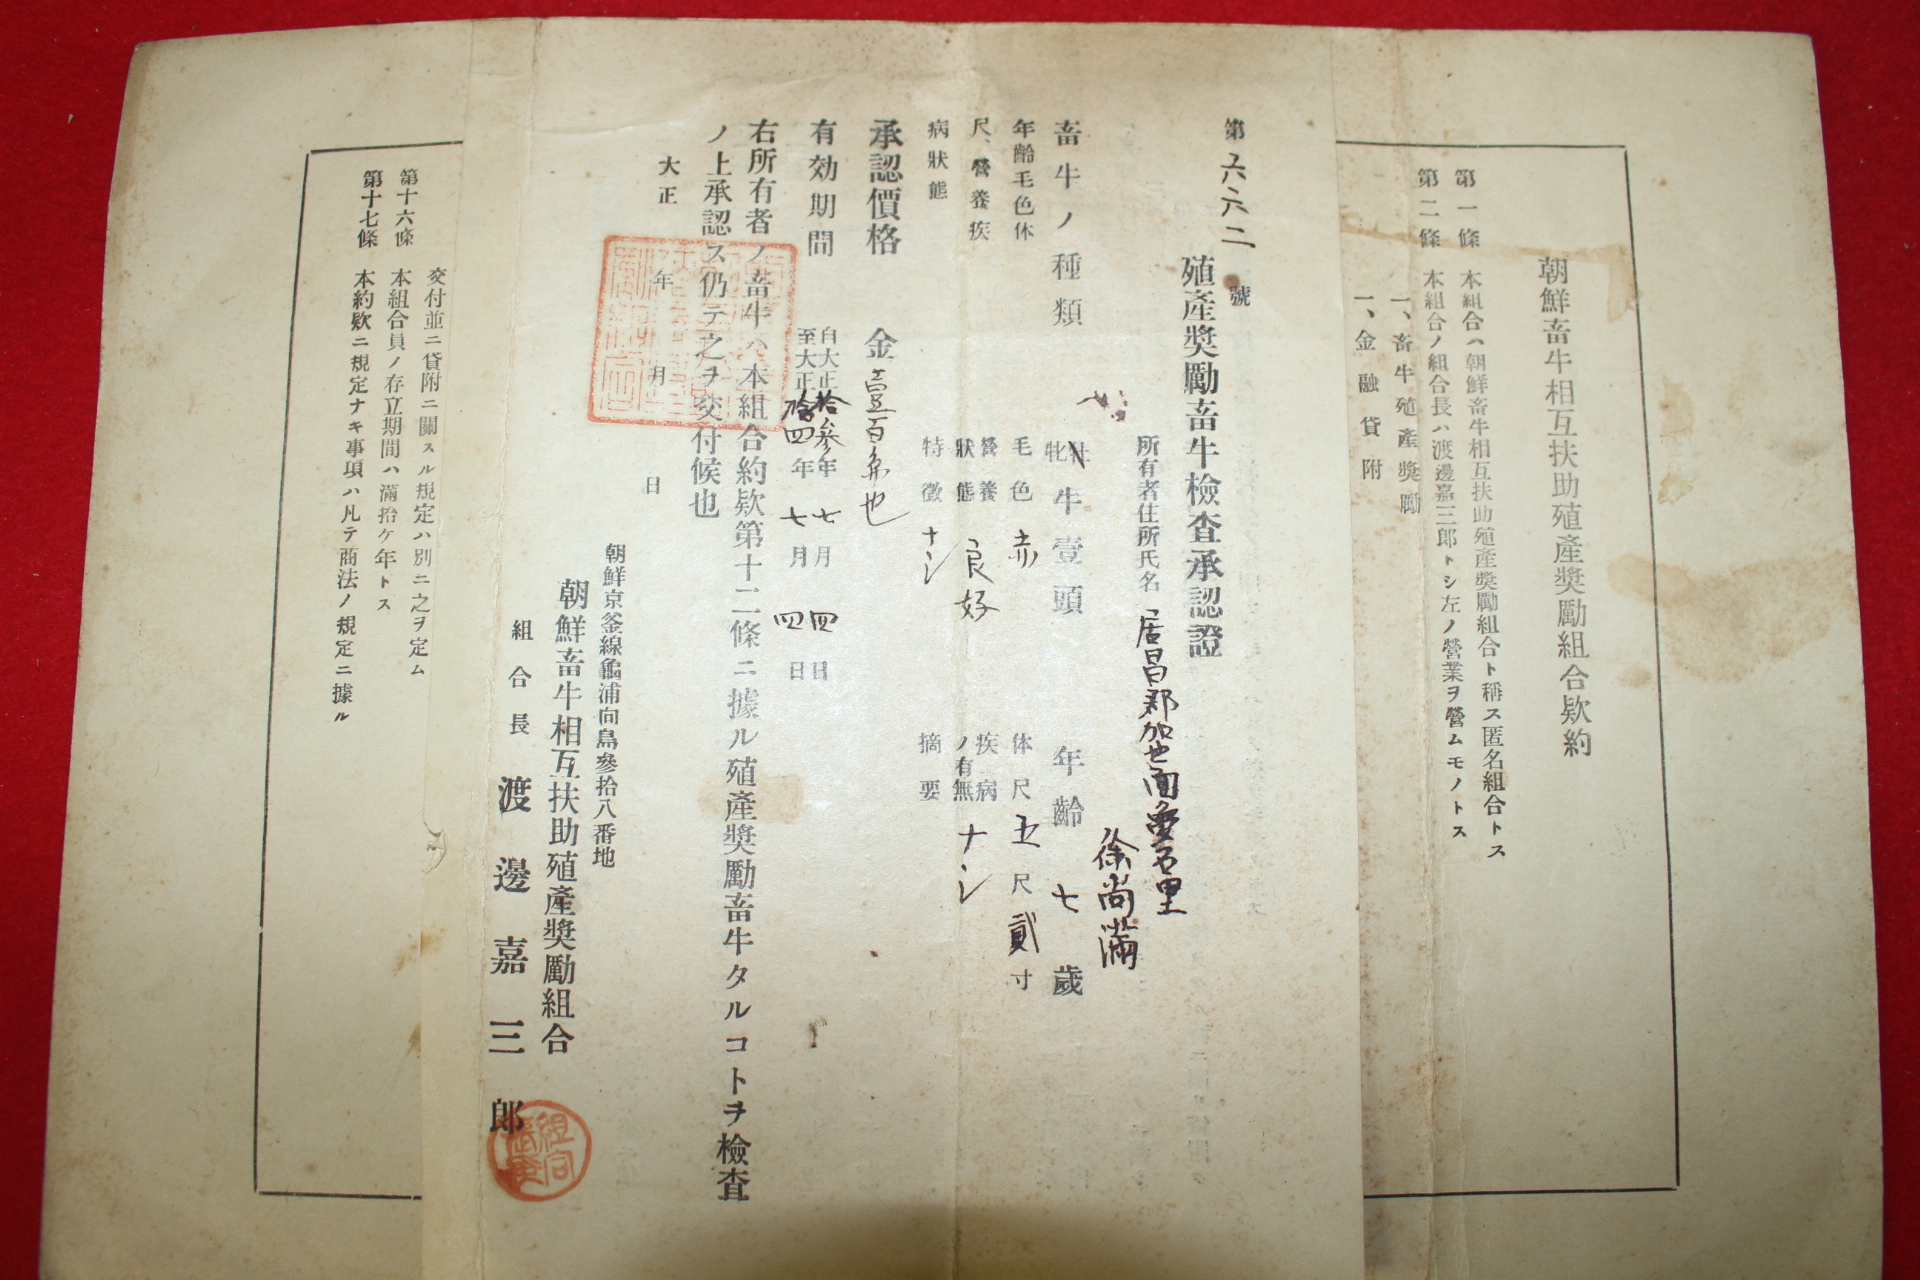 朝鮮畜牛相互扶助殖產獎勵組合欵約
第一條 本組合ハ朝鮮畜牛相互扶助殖產獎勵組合ト稱ス匿名組合トス
第二條 本組合ノ組合長ハ渡邊嘉三郎トシ左ノ營業ヲ營ムモノトス
一、畜牛殖產獎勵
一、金融貸附
第六六二號
殖產獎勵畜牛檢查承認證
所有者住所氏名 居昌郡加北面里
徐尚滿
畜牛ノ種類 牝牡牛壹頭 年齡七歲
年齡毛色体 毛色 赤 体尺五尺貳寸
尺、營養疾 營養狀態 良好 疾病ノ有無 ナシ
病狀態 特徵 ナシ 摘要
承認價格 金壹百円也
有効期間 自大正拾參年七月四日
至大正拾四年七月四日
右所有者ノ畜牛ハ本組合約欵第十二條ニ據ル殖產獎勵畜牛タルコトヲ檢查
ノ上承認ス仍テ之ヲ交付候也
大正 年 月 日
朝鮮京釜線龜浦向島參拾八番地
朝鮮畜牛相互扶助殖產獎勵組合
組合長 渡邊嘉三郎
交付並ニ貸附ニ關スル規定ハ別ニ之ヲ定ム
第十六條 本組合員ノ存立期間ハ滿拾ケ年トス
第十七條 本約欵ニ規定ナキ事項ハ凡テ商法ノ規定ニ據ル